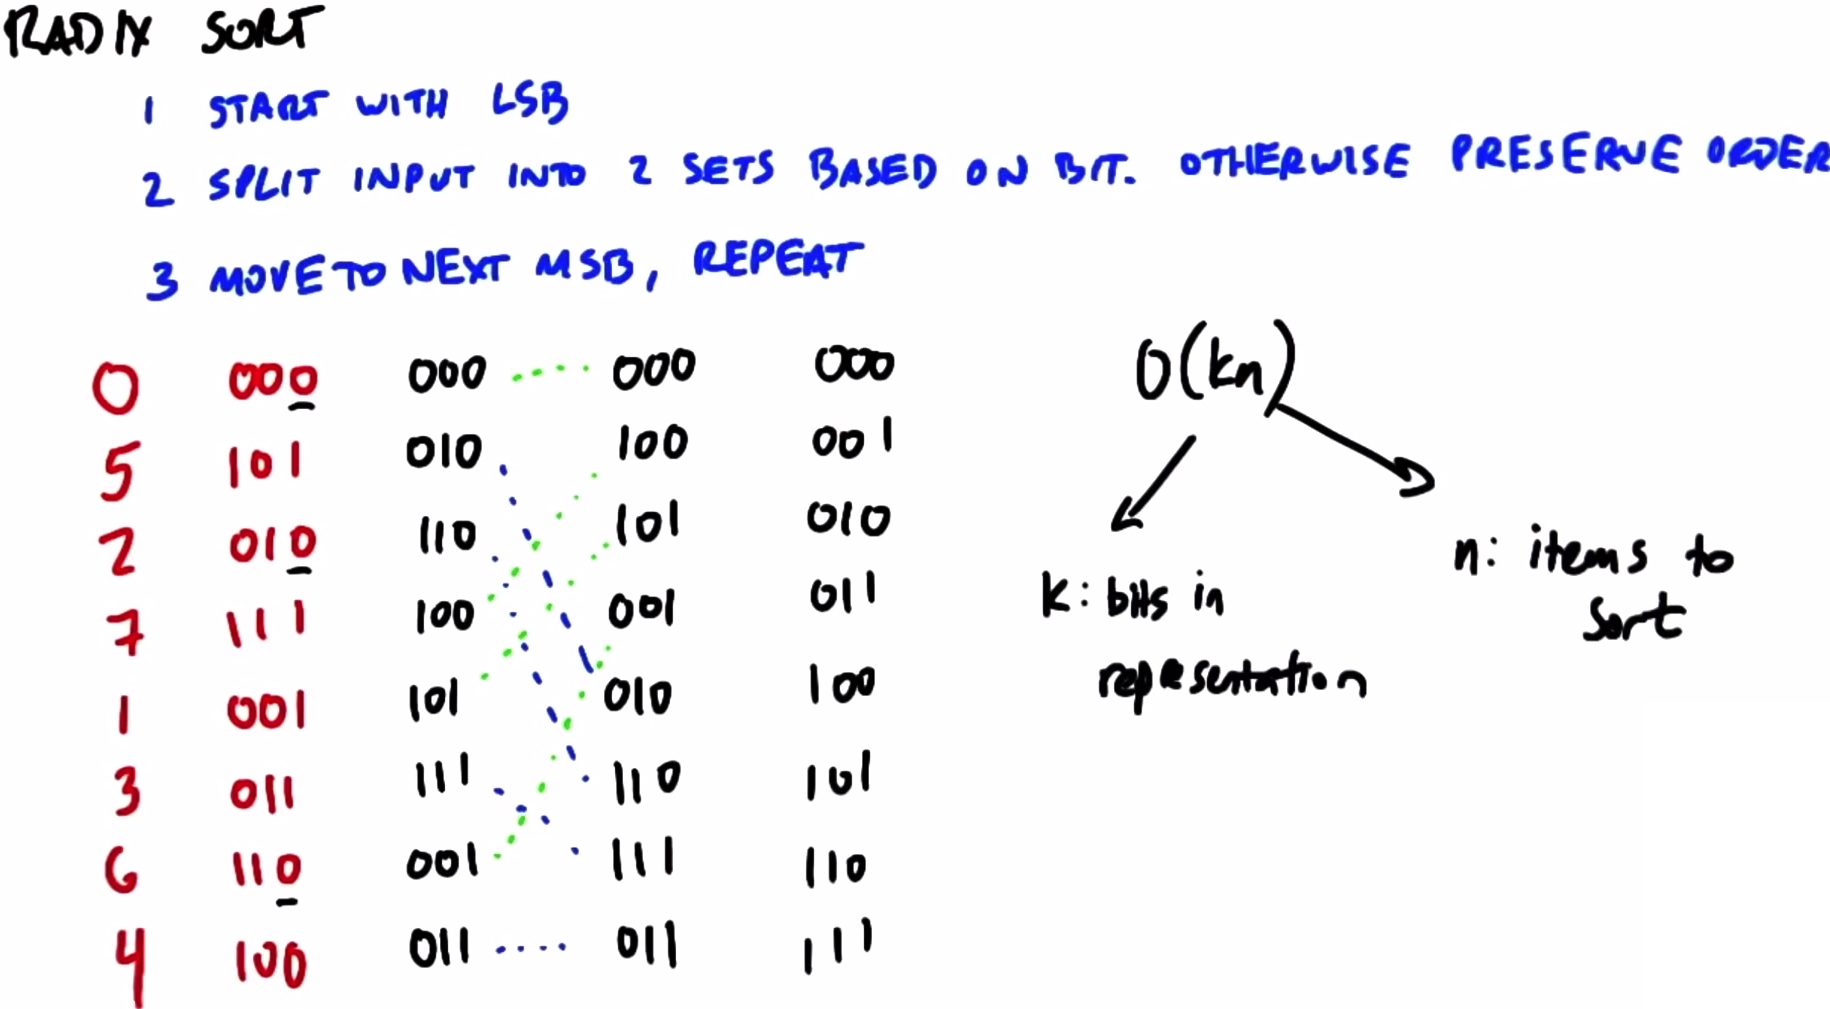 RADIX SORT
1 START WITH LSB
2 SPLIT INPUT INTO 2 SETS BASED ON BIT. OTHERWISE PRESERVE ORDER
3 MOVE TO NEXT MSB, REPEAT
0 000 000 000 000
5 101 010 100 001
2 010 110 101 010
7 111 100 001 011
1 001 101 010 100
3 011 111 110 101
6 110 001 111 110
4 100 011 011 111
O(kn)
k: bits in
representation
n: items to
sort